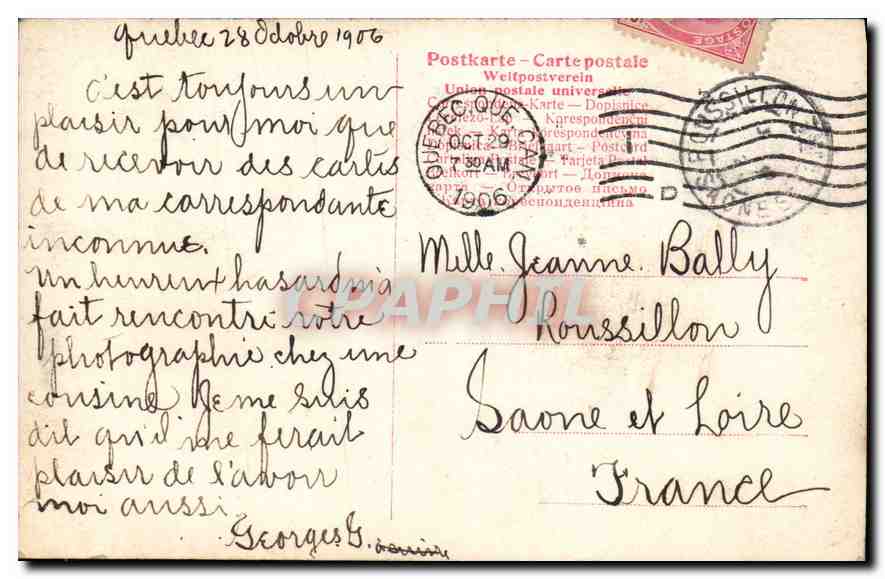 Quebec 28 Octobre 1906
C'est toujours un
plaisir pour moi que
de recevoir des cartes
de ma correspondante
inconnue.
Un heureux hasard m'a
fait rencontré votre
photographie chez une
cousine. Je me suis
dit qu'il me ferait
plaisir de l'avoir
moi aussi.
Georges G.
Postkarte – Carte postale
Weltpostverein
Union postale universelle
Correspondenz-Karte — Dopisnice
Karta korespondencyjna
Postcard
Tarjeta Postal
Открытое письмо
QUEBEC, QUE. CANADA
OCT 29
7-30 AM
1906
D
ROUSSILLON
POSTAGE
Melle. Jeanne. Bally
Roussillon
Saone et Loire
France
CPAPHIL